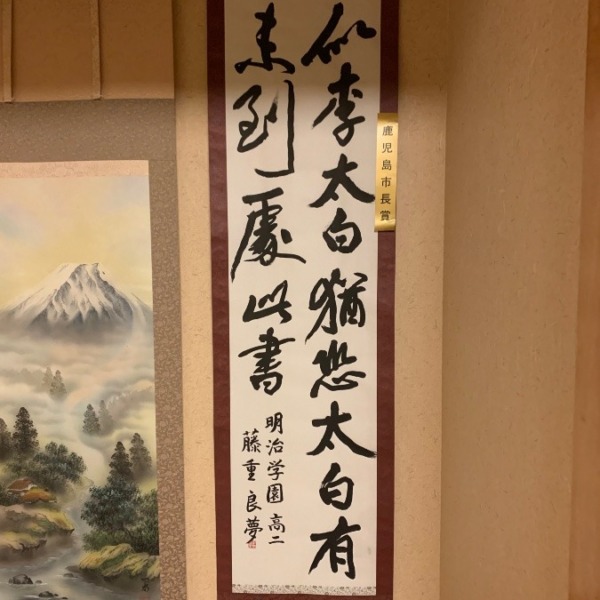 鹿児島市長賞
似李太白猶恐太白有
未到處此書
明治学園 高二
藤重良夢